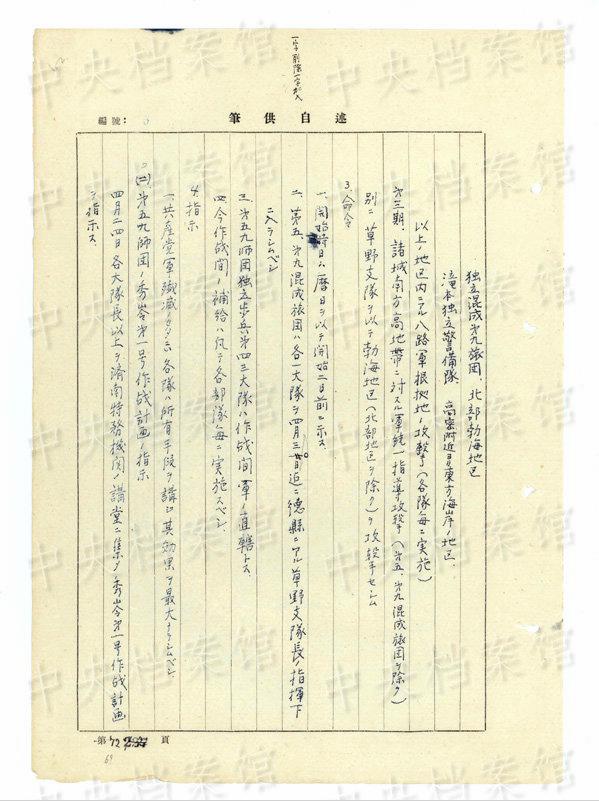 一字削除一字加入
編號：
筆供自述
独立混成第九旅团、北部勃海地区
滝本独立警備隊　高密附近ヨリ東方海岸ノ地区、
以上ノ地区内ニアル八路軍根拠地ノ攻撃（各隊毎ニ実施）
第三期、諸城南方高地帯ニ対スル軍統一指導攻撃（第五、第九混成旅团ヲ除ク）
別ニ草野支隊ヲ以テ勃海地区（北部地区ヲ除ク）ヲ攻撃セシム
3．命令
一、開始時日ハ暦日ヲ以テ開始二日前ニ示ス、
二、第五、第九混成旅团ハ各一大隊ヲ四月三十日迄ニ德縣ニアル草野支隊長ノ指揮下
ニ入ラシムベシ
三、第五九师团独立步兵第四三大隊ハ作战间軍ノ直轄トス、
四、今作战间ノ補给ハ凡テ各部隊每ニ実施スベシ、
4．指示
一、共産党軍ノ殲滅ノタメ各隊ハ所有手段ヲ講シ其効果ヲ最大ナラシムベシ
(二)、第五九师团ノ秀岺第一号作战計画ノ指示
四月二四日各大隊長以上ヲ济南特務機関ノ講堂ニ集メ秀岺第一号作战計画
ヲ指示ス、
第 72 頁
69
中央档案馆